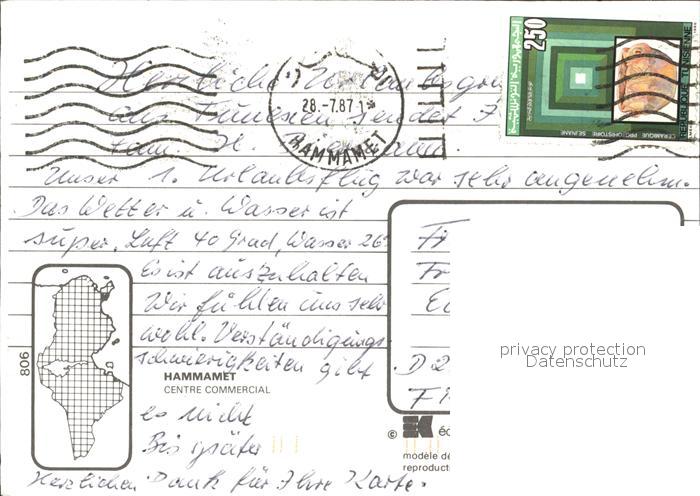 Herzliche Urlaubsgrüße
aus Tunesien sendet
Fam. H.
Unser 1. Urlaubsflug war sehr angenehm.
Das Wetter u. Wasser ist
super. Luft 40 Grad, Wasser 26°
Es ist auszuhalten
Wir fühlen uns sehr
wohl. Verständigungs-
schwierigkeiten gibt
es nicht
Bis später
Herzlichen Dank für Ihre Karte.
28.-7.87
HAMMAMET
250
REPUBLIQUE TUNISIENNE
CERAMIQUE PROTOHISTOIRE SEJNANE
الجمهورية التونسية
806
HAMMAMET
CENTRE COMMERCIAL
D 2
©
modèle dé
reproducti
privacy protection
Datenschutz